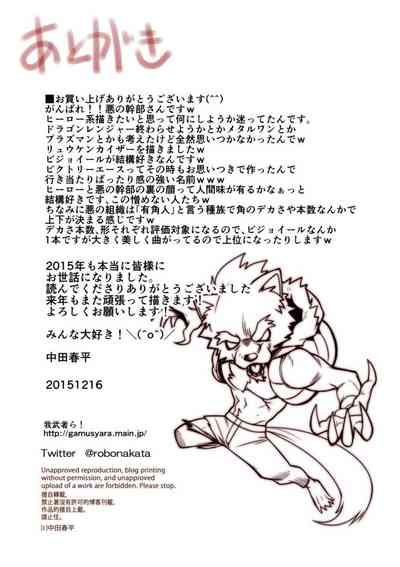 あとがき
■お買い上げありがとうございます(^^)
がんばれ！！悪の幹部さんですｗ
ヒーロー系描きたいと思って何にしようか迷ってたんです。
ドラゴンレンジャー終わらせようかとかメタルワンとか
プラズマンとかも考えたけど全然思いつかなかったんでｗ
リュウケンカイザーを描きましたｗ
ビジョイールが結構好きなんですｗ
ビクトリーエースってその時もお思いつきで作ったんで
行き当たりばったり感の強い名前ｗｗｗ
ヒーローと悪の幹部の裏の顔って人間味が有るかなぁっと
結構好きです、この憎めない人たちｗ
ちなみに悪の組織は「有角人」と言う種族で角のデカさや本数なんかで
上下が決まる感じですｗ
デカさ本数、形それぞれ評価対象になるので、ビジョイールなんか
１本ですが大きく美しく曲がってるので上位になったりしますｗ
2015年も本当に皆様に
お世話になりました。
読んでくださりありがとうございました
来年もまた頑張って描きます！
よろしくお願いします！
みんな大好き！＼(^o^)／
中田春平
20151216
我武者ら！
http://gamusyara.main.jp/
Twitter　@robonakata
Unapproved reproduction, blog printing
without permission, and unapproved
upload of a work are forbidden. Please stop.
擅自轉載,
禁止著沒有許可的博客刊載,
作品的擅自上載。
請止住。
(c)中田春平